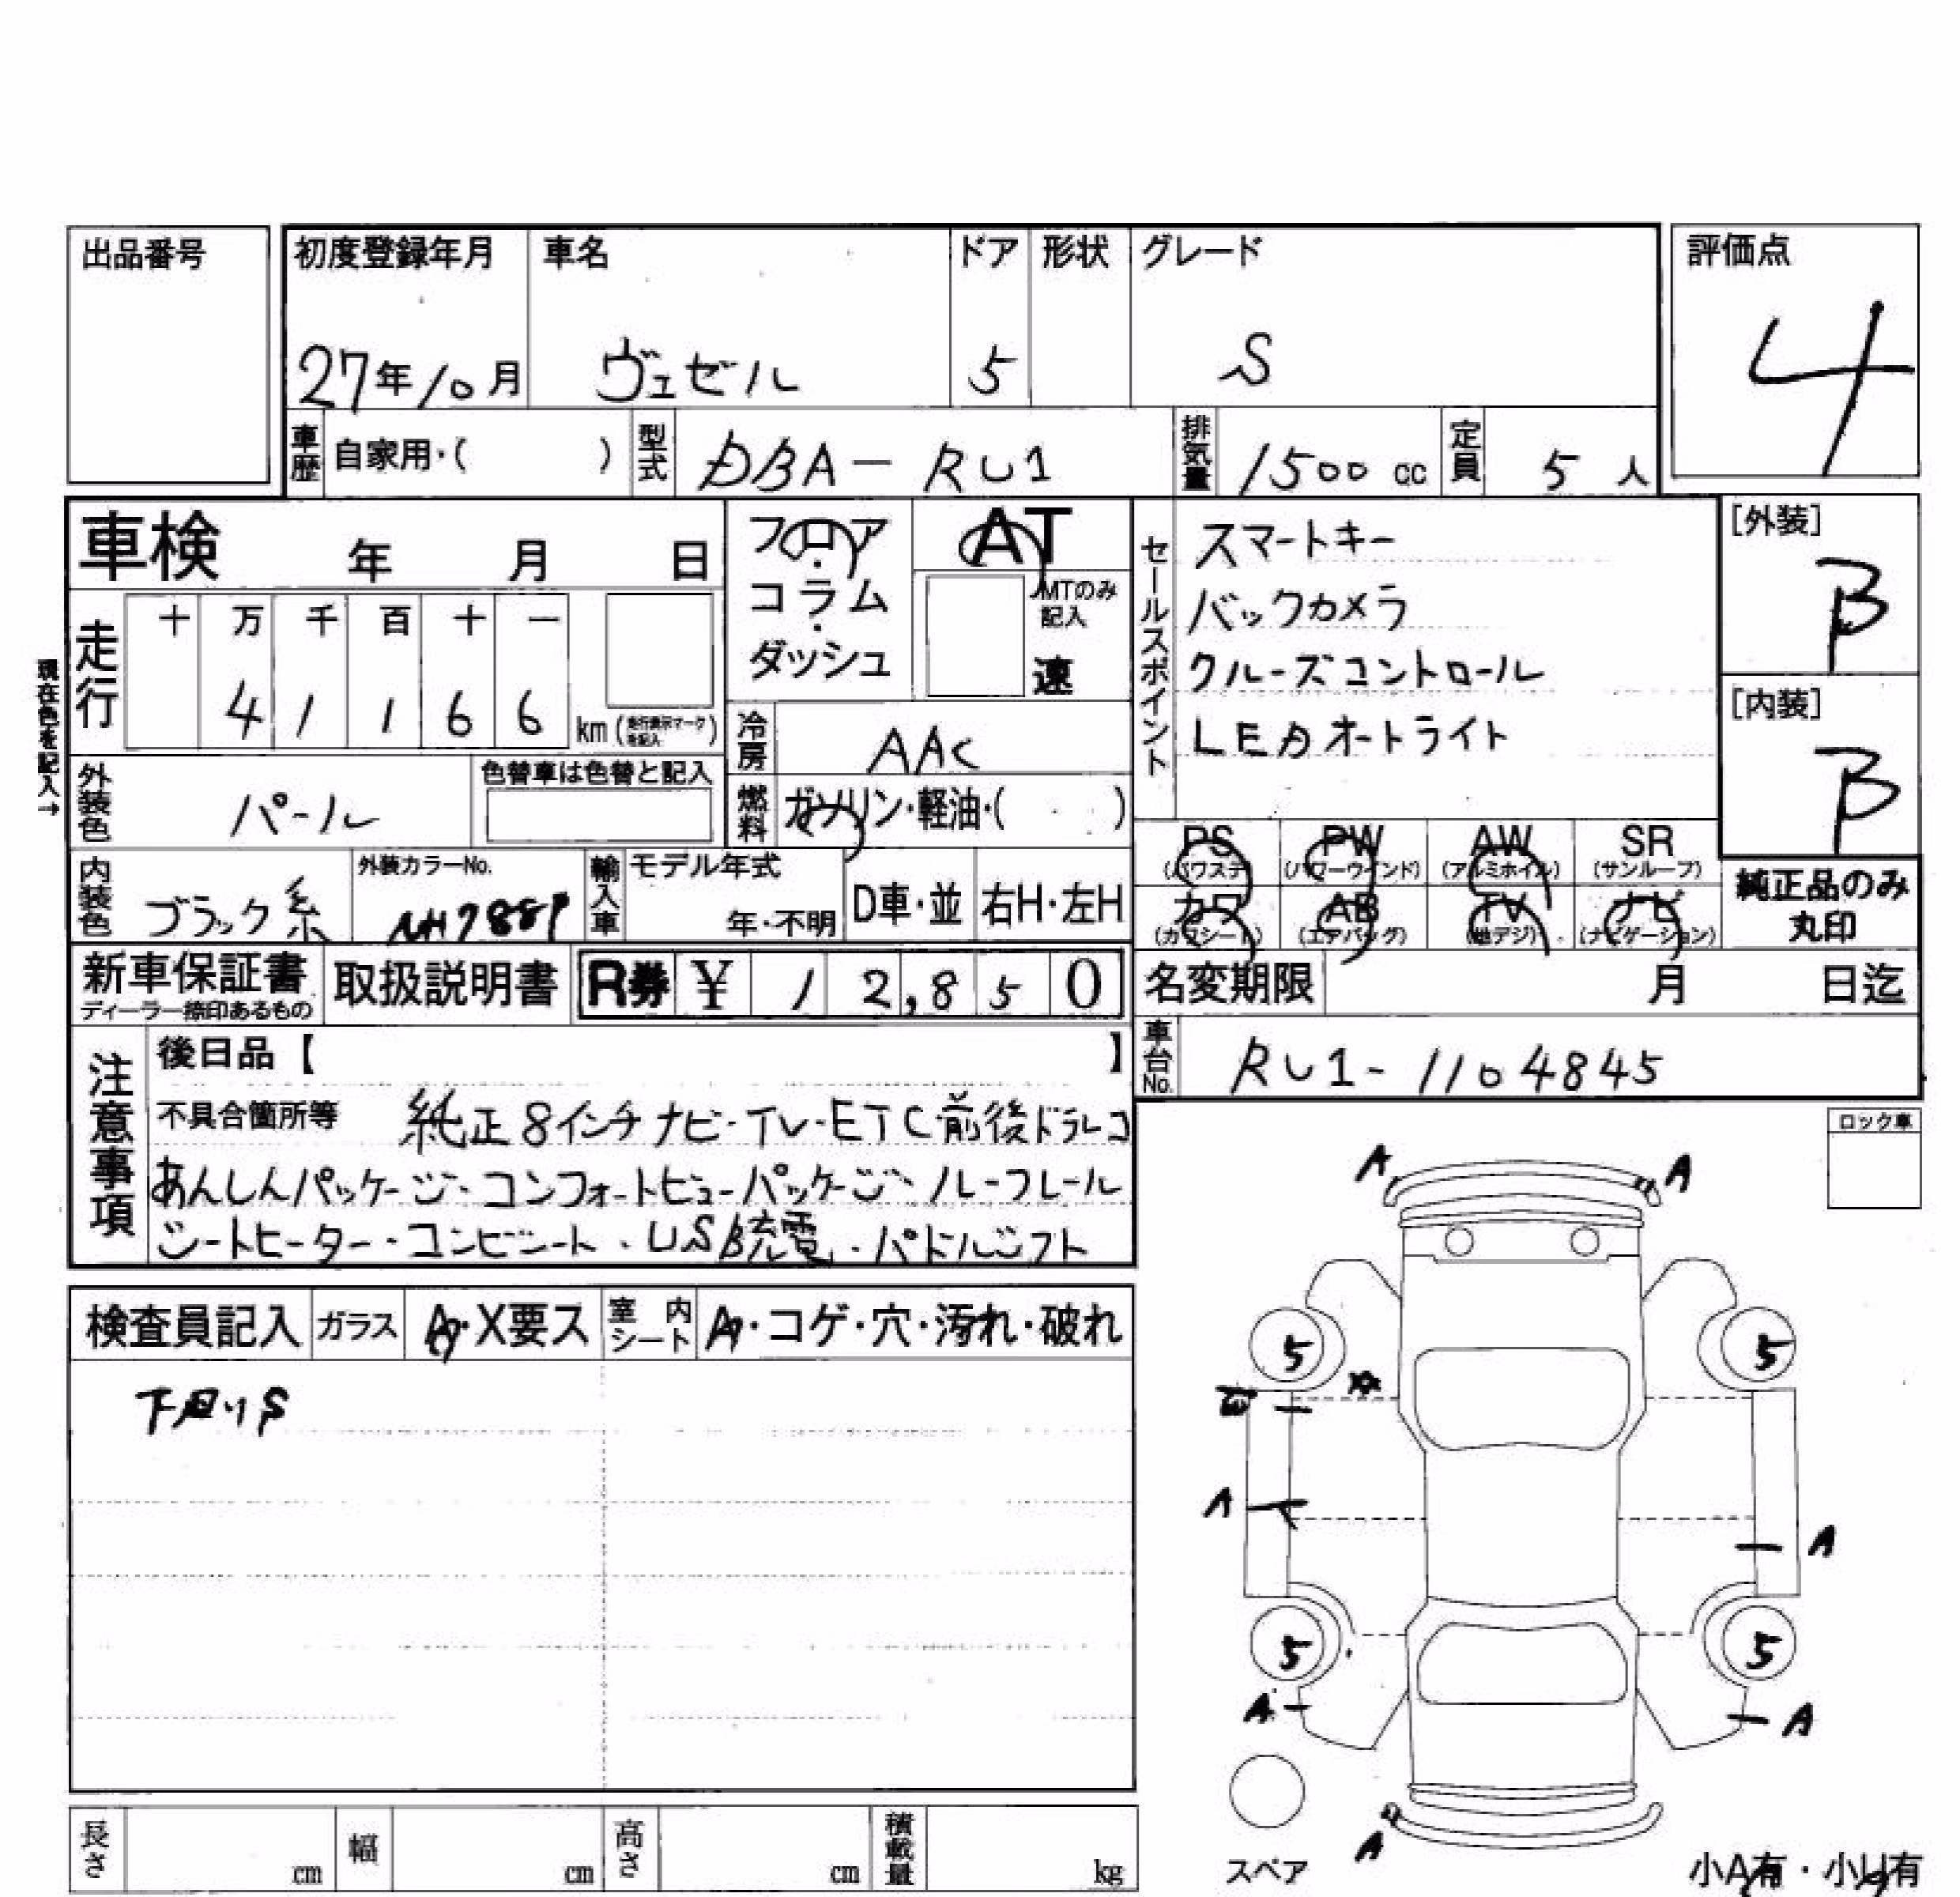 出品番号
初度登録年月 車名 ドア 形状 グレード 評価点
27年10月 ヴェゼル 5 S 4
車歴 自家用・( ) 型式 DBA-RU1 排気量 1500cc 定員 5人
車検 年 月 日
フロア・コラム・ダッシュ
AT
MTのみ記入
速
セールスポイント
スマートキー
バックカメラ
クルーズコントロール
LEDオートライト
[外装]
B
[内装]
B
現在色を記入→
走行 十 万 千 百 十 一
4 1 1 6 6 km(走行表示マークを記入)
冷房 AAC
外装色 パール 色替車は色替と記入
燃料 ガソリン・軽油・( )
PS PW AW SR
(パワステ) (パワーウインド) (アルミホイル) (サンルーフ)
カワ AB TV ナビ
(カワシート) (エアバッグ) (地デジ) (ナビゲーション)
純正品のみ
丸印
内装色 ブラック系 外装カラーNo. 輸入車 モデル年式 年・不明 D車・並 右H・左H
新車保証書 取扱説明書 R券 ¥ 1 2,8 5 0
ディーラー捺印あるもの
名変期限 月 日迄
車台No. RU1-1104845
注意事項
後日品【 】
不具合箇所等 純正8インチナビ・TV・ETC前後ドラレコ
あんしんパッケージ・コンフォートビューパッケージ・ルーフレール
シートヒーター・コンビシート・USB充電・パドルシフト
ロック車
検査員記入 ガラス A・X要ス 室内シート A・コゲ・穴・汚れ・破れ
A A
5 5
A
A
5 5
A A
A
スペア
小A有・小U有
長さ cm 幅 cm 高さ cm 積載量 kg